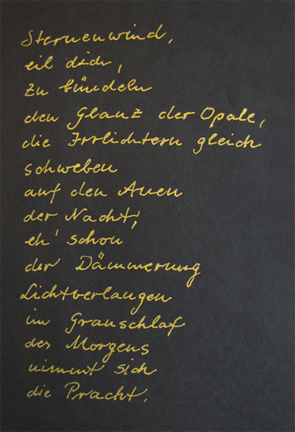 Sternenwind,
eil dich,
zu bündeln
den Glanz der Opale,
die Irrlichtern gleich
schweben
auf den Auen
der Nacht,
eh' schon
der Dämmerung
Lichtverlangen
im Grauschlaf
des Morgens
nimmt sich
die Pracht.